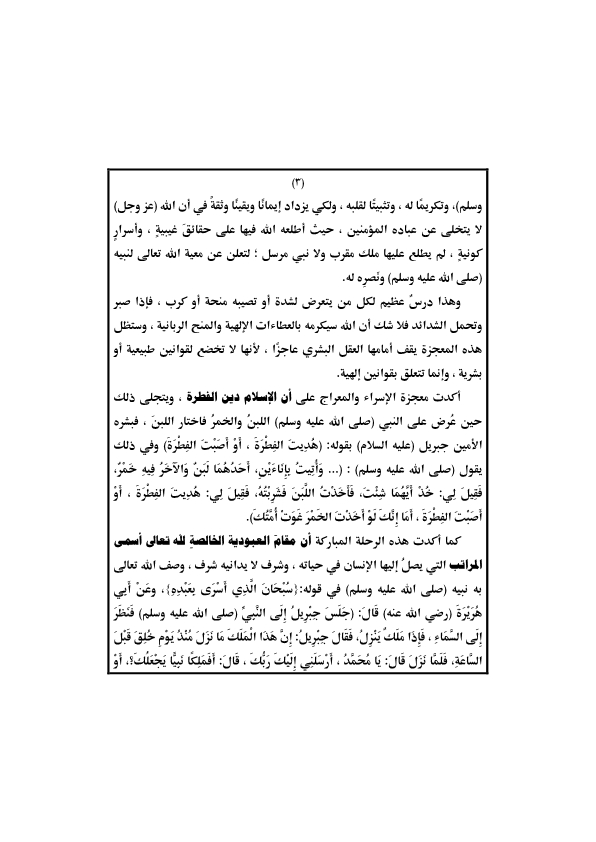 (٣)
وسلم)، وتكريمًا له ، وتثبيتًا لقلبه ، ولكي يزداد إيمانًا ويقينًا وثقةً في أن الله (عز وجل)
لا يتخلى عن عباده المؤمنين ، حيث أطلعه الله فيها على حقائقَ غيبيةٍ ، وأسرارٍ
كونيةٍ ، لم يطلع عليها ملك مقرب ولا نبي مرسل ؛ لتعلن عن معية الله تعالى لنبيه
(صلى الله عليه وسلم) ونَصرِه له.
وهذا درسٌ عظيم لكل من يتعرض لشدة أو تصيبه منحة أو كرب ، فإذا صبر
وتحمل الشدائد فلا شك أن الله سيكرمه بالعطاءات الإلهية والمنح الربانية ، وستظل
هذه المعجزة يقف أمامها العقل البشري عاجزًا ، لأنها لا تخضع لقوانين طبيعية أو
بشرية ، وإنما تتعلق بقوانين إلهية.
أكدت معجزة الإسراء والمعراج على أن الإسلام دين الفطرة ، ويتجلى ذلك
حين عُرض على النبي (صلى الله عليه وسلم) اللبنُ والخمرُ فاختار اللبنَ ، فبشره
الأمين جبريل (عليه السلام) بقوله: (هُدِيتَ الفِطْرَةَ ، أَوْ أَصَبْتَ الفِطْرَةَ) وفي ذلك
يقول (صلى الله عليه وسلم) : (... وَأُتِيتُ بِإِنَاءَيْنِ، أَحَدُهُمَا لَبَنٌ وَالآخَرُ فِيهِ خَمْرٌ،
فَقِيلَ لِي: خُذْ أَيَّهُمَا شِئْتَ، فَأَخَذْتُ اللَّبَنَ فَشَرِبْتُهُ، فَقِيلَ لِي: هُدِيتَ الفِطْرَةَ ، أَوْ
أَصَبْتَ الفِطْرَةَ ، أَمَا إِنَّكَ لَوْ أَخَذْتَ الخَمْرَ غَوَتْ أُمَّتُكَ).
كما أكدت هذه الرحلة المباركة أن مقامَ العبودية الخالصةِ لله تعالى أسمى
المراتب التي يصلُ إليها الإنسان في حياته ، وشرف لا يدانيه شرف ، وصف الله تعالى
به نبيه (صلى الله عليه وسلم) في قوله:{سُبْحَانَ الَّذِي أَسْرَى بِعَبْدِهِ}، وعَنْ أَبِي
هُرَيْرَةَ (رضي الله عنه) قَالَ: (جَلَسَ جِبْرِيلُ إِلَى النَّبِيِّ (صلى الله عليه وسلم) فَنَظَرَ
إِلَى السَّمَاءِ ، فَإِذَا مَلَكٌ يَنْزِلُ، فَقَالَ جِبْرِيلُ: إِنَّ هَذَا الْمَلَكَ مَا نَزَلَ مُنْذُ يَوْمِ خُلِقَ قَبْلَ
السَّاعَةِ، فَلَمَّا نَزَلَ قَالَ: يَا مُحَمَّدُ ، أَرْسَلَنِي إِلَيْكَ رَبُّكَ ، قَالَ: أَفَمَلِكًا نَبِيًّا يَجْعَلُكَ؟، أَوْ